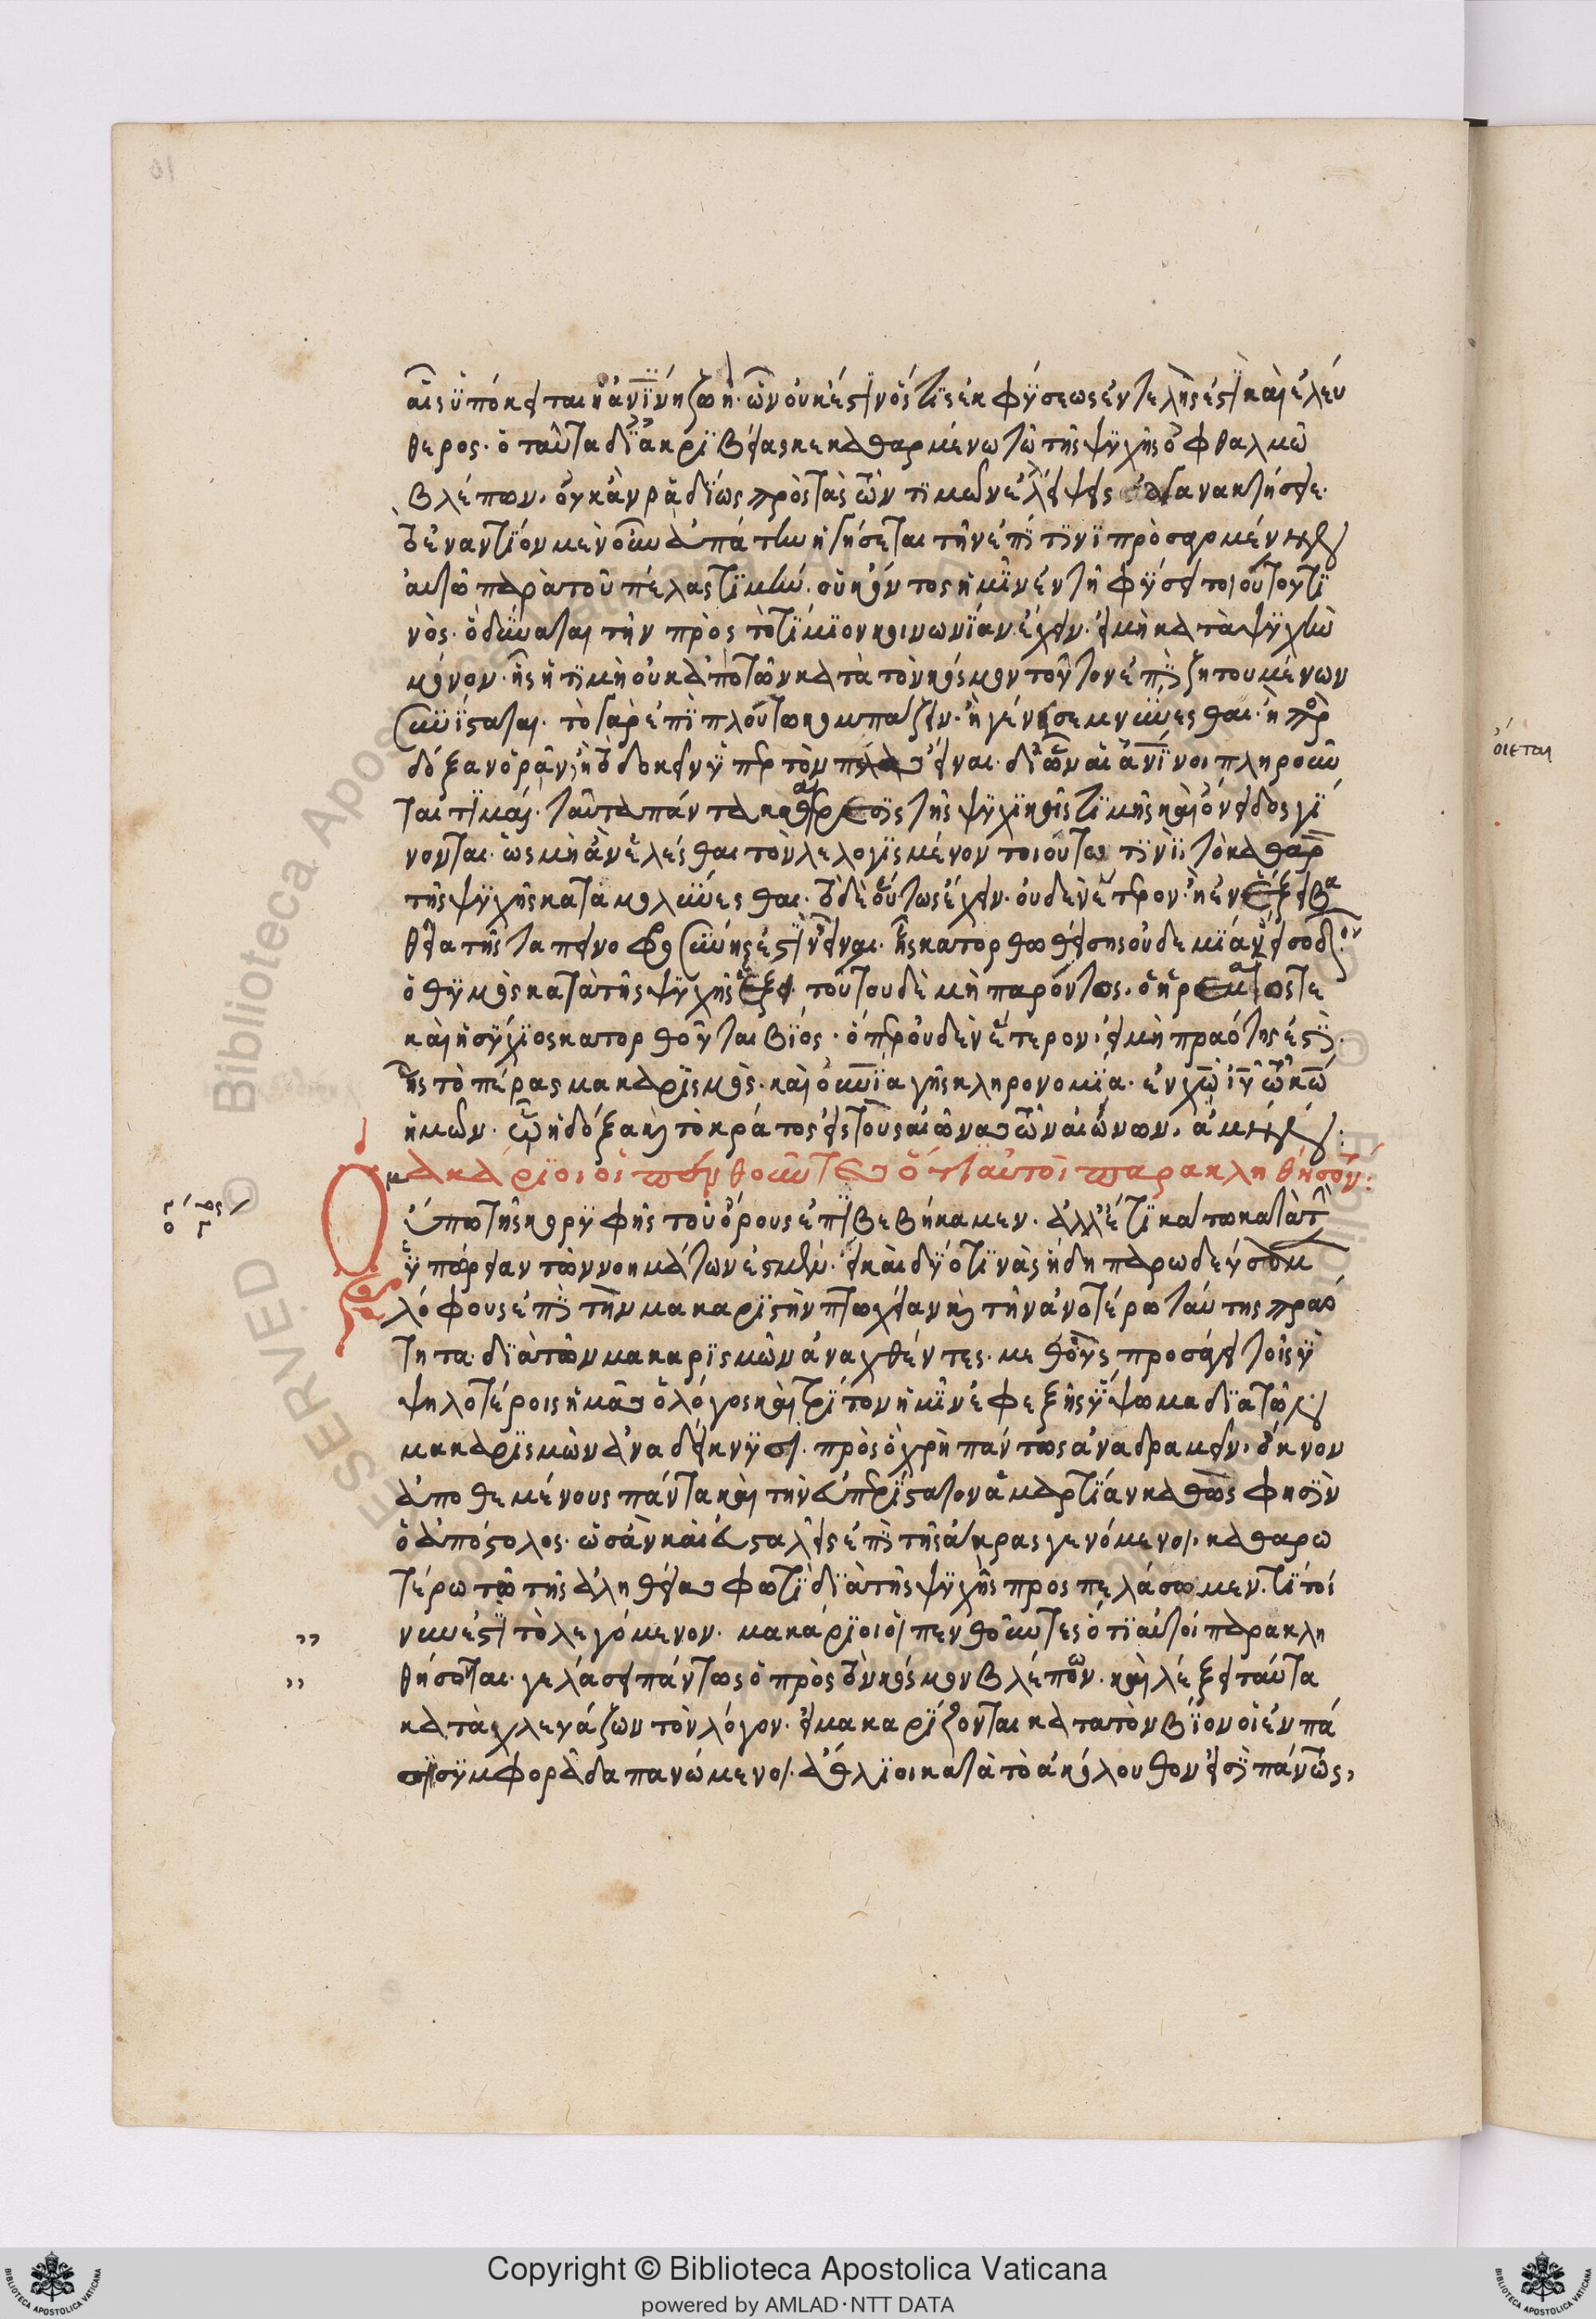 αις ὑπόκειται ἡ ἀνίνη ζωὴ. ὧν οὐκ ἔστιν ὅστις ἐκ φύσεως ἐντελής ἐστι καὶ ἐλεύ
θερος. ὁ ταῦτα δι ἀκριβείας κεκαθαρμένω τῶ τῆς ψυχῆς ὀφθαλμῶ
βλέπων, οὐκ ἂν ῥαδίως πρὸς τὰς τῶν τιμῶν ἐλλείψεις ἀγανακτήσειε.
τοὐναντίον μὲν οὖν ἀπάτην ἡγήσεται τὴν ἐπί τινι προσαγομένην
αὐτῶ παρὰ τοῦ πέλας τιμήν. οὐκ ὄντος ἡμῖν ἐν τῆ φύσει τοιούτου τι
νὸς. ὃ δύναται τὴν πρὸς τὸ τίμιον κοινωνίαν ἔχειν. εἰ μὴ κατὰ ψυχὴν
μόνον. ἧς ἡ τιμὴ οὐκ ἀπο τῶν κατὰ τὸν κόσμον τοῦτον ἐπιζητουμένων
συνίσταται. τὸ γὰρ ἐπὶ πλούτω κομπάζειν. ἢ γένει σεμνύνεσθαι. ἢ πρὸς
δόξαν ὁρᾶν, ἢ τὸ δοκεῖν ὑπὲρ τὸν πέλας εἶναι. δι ὧν αἱ ἀνίνοι πληροῦν
ται τιμαί. ταῦτα πάντα καθαίρεσις τῆς ψυχικῆς τιμῆς καὶ ὄνειδος γί
νονται. ὡς μὴ ἂν ἑλέσθαι τὸν λελογισμένον τοιούτω τινὶ τὸ καθαρὸν
τῆς ψυχῆς καταμολύνεσθαι. τὸ δὲ οὕτως ἔχειν. οὐδὲν ἕτερον. ἢ ἐν ἕξει βα
θεῖα τῆς ταπεινοφροσύνης ἐστὶν εἶναι. ἧς κατορθωθείσης οὐδεμίαν εἴσοδον
ὁ θυμὸς κατὰ τῆς ψυχῆς ἕξει. τούτου δὲ μὴ παρόντος, ὁ ἠρεμαῖος τε
καὶ ἡσύχιος κατορθοῦται βίος. ὅπερ οὐδὲν ἕτερον, εἰ μὴ πραότης ἐστί.
ἧς τὸ πέρας μακαρισμὸς. καὶ οὐνία γῆς κληρονομία. ἐν χω ιυ τω κω
ἡμῶν. ὧ ἡ δόξα καὶ τὸ κράτος εἰς τοὺς αἰῶνας τῶν αἰώνων, ἀμήν:
μακάριοι οἱ πενθοῦντες ὅτι αὐτοὶ παρακληθήσονται:
Οὔπω τῆς κορυφῆς τοῦ ὄρους ἐπιβεβήκαμεν. ἀλλ ἔτι κάτω κατὰ τὴν
ὑπώρειαν τῶν νοημάτων ἐσμέν. εἰ καὶ δύο τινὰς ἤδη παρωδεύσαμεν
λόφους ἐπί τὴν μακαριστὴν πτωχείαν καὶ τὴν ἀνοτέρω ταύτης πραό
τητα. διὰ τῶν μακαρισμῶν ἀναχθέντες. μεθ οὓς προσάγει τοῖς ὑ
ψηλοτέροις ἡμᾶς ὁ λόγος καὶ τρίτον ἡμῖν ἐφεξῆς ὕψωμα διὰ τῶν
μακαρισμῶν ἀναδείκνυσι. πρὸς ὃ χρὴ πάντως ἀναδραμεῖν, ὄκνον
ἀποθεμένους πάντα καὶ τὴν εὐπερίστατον ἁμαρτίαν καθὼς φησὶν
ὁ ἀπόστολος. ὡς ἂν καὶ εὐσταλεῖς ἐπὶ τῆς ἄκρας γενόμενοι, καθαρω
τέρω τῶ τῆς ἀληθείας φωτὶ διὰ τῆς ψυχῆς προσπελάσωμεν. τί τοί
νυν ἐστὶ τὸ λεγόμενον. μακάριοι οἱ πενθοῦντες ὅτι αὐτοὶ παρακλη
θήσονται. γελάσει πάντως ὁ πρὸς τὸν κόσμον βλέπων. καὶ λέξει ταῦτα
καταχλευάζων τὸν λόγον. εἰ μακαρίζονται κατὰ τὸν βίον οἱ ἐν πά
ση συμφορᾶ δαπανώμενοι. ἄθλιοι κατὰ τὸ ἀκόλουθον εἰσὶ πάντως,
οἴεται
Copyright © Biblioteca Apostolica Vaticana
powered by AMLAD·NTT DATA